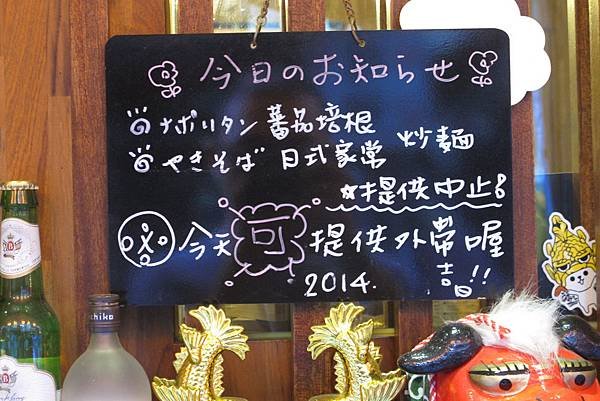 今日のお知らせ
ナポリタン 蕃茄培根
やきそば 日式家常 炒麵
☆提供中止
今天可提供外帶喔!!
2014. 吉日
chiko